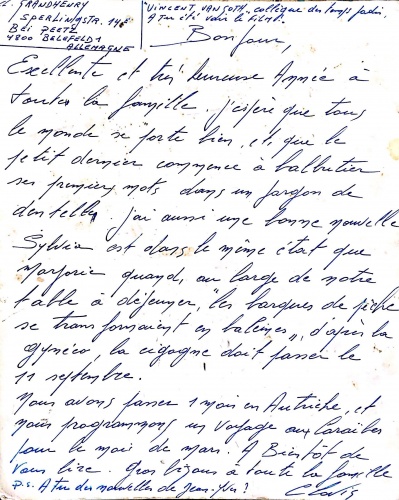 GRANDHENRY
SPERLINGSTR. 14E
BEI PEETZ
4800 BIELEFELD 1
ALLEMAGNE
VINCENT VAN GOTH, collègue des temps jadis.
A tu été voir le film?
Bonjour,
Excellente et très heureuse Année à
toutes la famille. j'espère que tous
le monde se porte bien, et que le
petit dernier commence à balbutier
ses premiers mots dans un jargon de
dentelles. j'ai aussi une bonne nouvelle
Sylvia est dans le même état que
Marjorie quand, au large de notre
table à déjeuner, "les barques de pêche
se transformaient en baleines", d'après la
gynéco, la cigogne doit passer le
11 septembre.
Nous avons passer 1 mois en Autriche, et
nous programmons un voyage aux Caraïbes
pour le mois de mars. A Bientôt de
vous lire. Gros bizous à toute la famille
P.S. A tu des nouvelles de Jean-Yves?